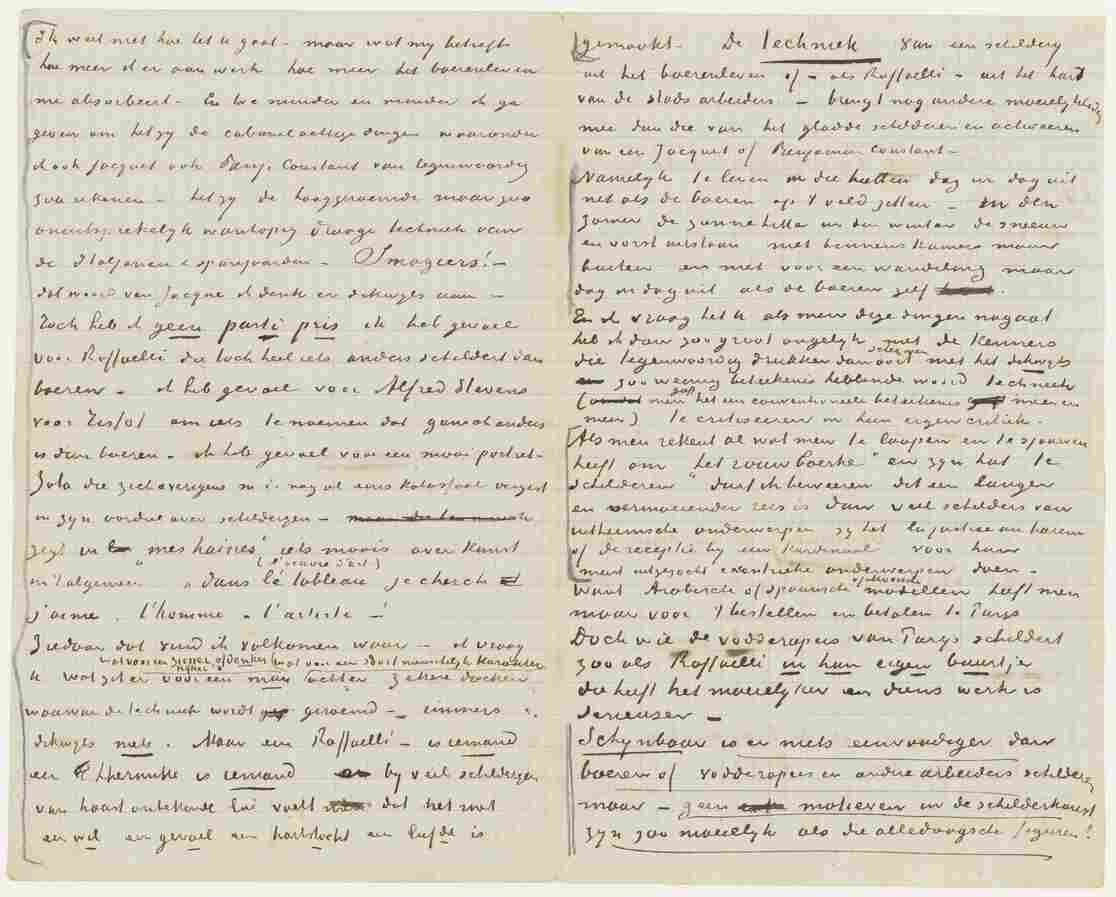 Ik weet niet hoe het U gaat – maar wat my betreft
hoe meer ik er aan werk hoe meer het boerenleven
me absorbeert – En hoe minder en minder ik ga
geven om hetzy de cabanelachtige dingen waaronder
ik ook Jacquet ook Benj. Constant van tegenwoordig
zou rekenen – hetzy de hooggeroemde maar zoo
onuitsprekelyk wanhopig drooge techniek van
de Italjanen & spanjaarden – Imagiers! –
dat woord van Jacque ik denk er dikwyls aan –
Toch heb ik geen parti pris ik heb gevoel
voor Raffaelli die toch heel iets anders schildert dan
boeren – ik heb gevoel voor Alfred Stevens
voor Tissot om iets te noemen dat gansch anders
is dan boeren – ik heb gevoel voor een mooi portret –
Zola die zich overigens m.i. nog al eens kolossaal vergist
in zyn oordeel over schilderyen –
zegt in „mes haines” iets moois over kunst
in 't algemeen „dans le tableau (l'oeuvre d'art) je cherche
j'aime l'homme – l'artiste –”
Ziedaar dat vind ik volkomen waar – ik vraag
wat voor een ziener of denker wat voor een soort menschelyk karakter
U wat zit er voor een man achter zekere doeken
waarvan de techniek wordt geroemd – immers
dikwyls niets. Maar een Raffaelli – is iemand
een Lhermitte is iemand en by veel schilderyen
van haast onbekende lui voelt dat het met
een wil een gevoel een hartstocht en liefde is
gemaakt. De Techniek van een schildery
uit het boerenleven of – als Raffaelli – uit het hart
van de stads arbeiders – brengt nog andere moeielykheden
mee dan die van het gladde schilderen en acteeren
van een Jacquet of Benjamin Constant –
Namelyk te leven in die hutten dag in dag uit
net als de boeren op 't veld zitten – in den
zomer de zonnehitte in den winter de sneeuw
en vorst uitstaan niet binnenskamers maar
buiten en niet voor een wandeling maar
dag in dag uit als de boeren zelf.
En ik vraag het U als men deze dingen nagaat
heb ik dan zoo groot ongelyk met de kenners
die tegenwoordig drukker dan ooit schermen met het dikwyls
zoo weinig beteekenis hebbende woord techniek
(men gaf het een conventioneele beteekenis meer en
meer) te critiseeren in hun eigen critiek.
Als men rekent al wat men te loopen en te sjouwen
heeft om „het rouwboerke” en zyn hut te
schilderen durf ik beweren dit een langer
en vermoeiender reis is dan veel schilders van
uitheemsche onderwerpen zy het la justice au harem
of de receptie by een Kardinaal voor hun
meest uitgezocht excentrieke onderwerpen doen.
Want Arabische of spaansche of moorsche modellen heeft men
maar voor 't bestellen en betalen te Parys
Doch wie de vodderapers van Parys schildert
zoo als Raffaelli in hun eigen buurtje
die heeft het moeielyker en diens werk is
serieuser –
Schynbaar is er niets eenvoudiger dan
boeren of vodderapers en andre arbeiders schilderen
maar – geen motieven in de schilderkunst
zyn zoo moeielyk als die alledaagsche figuren!